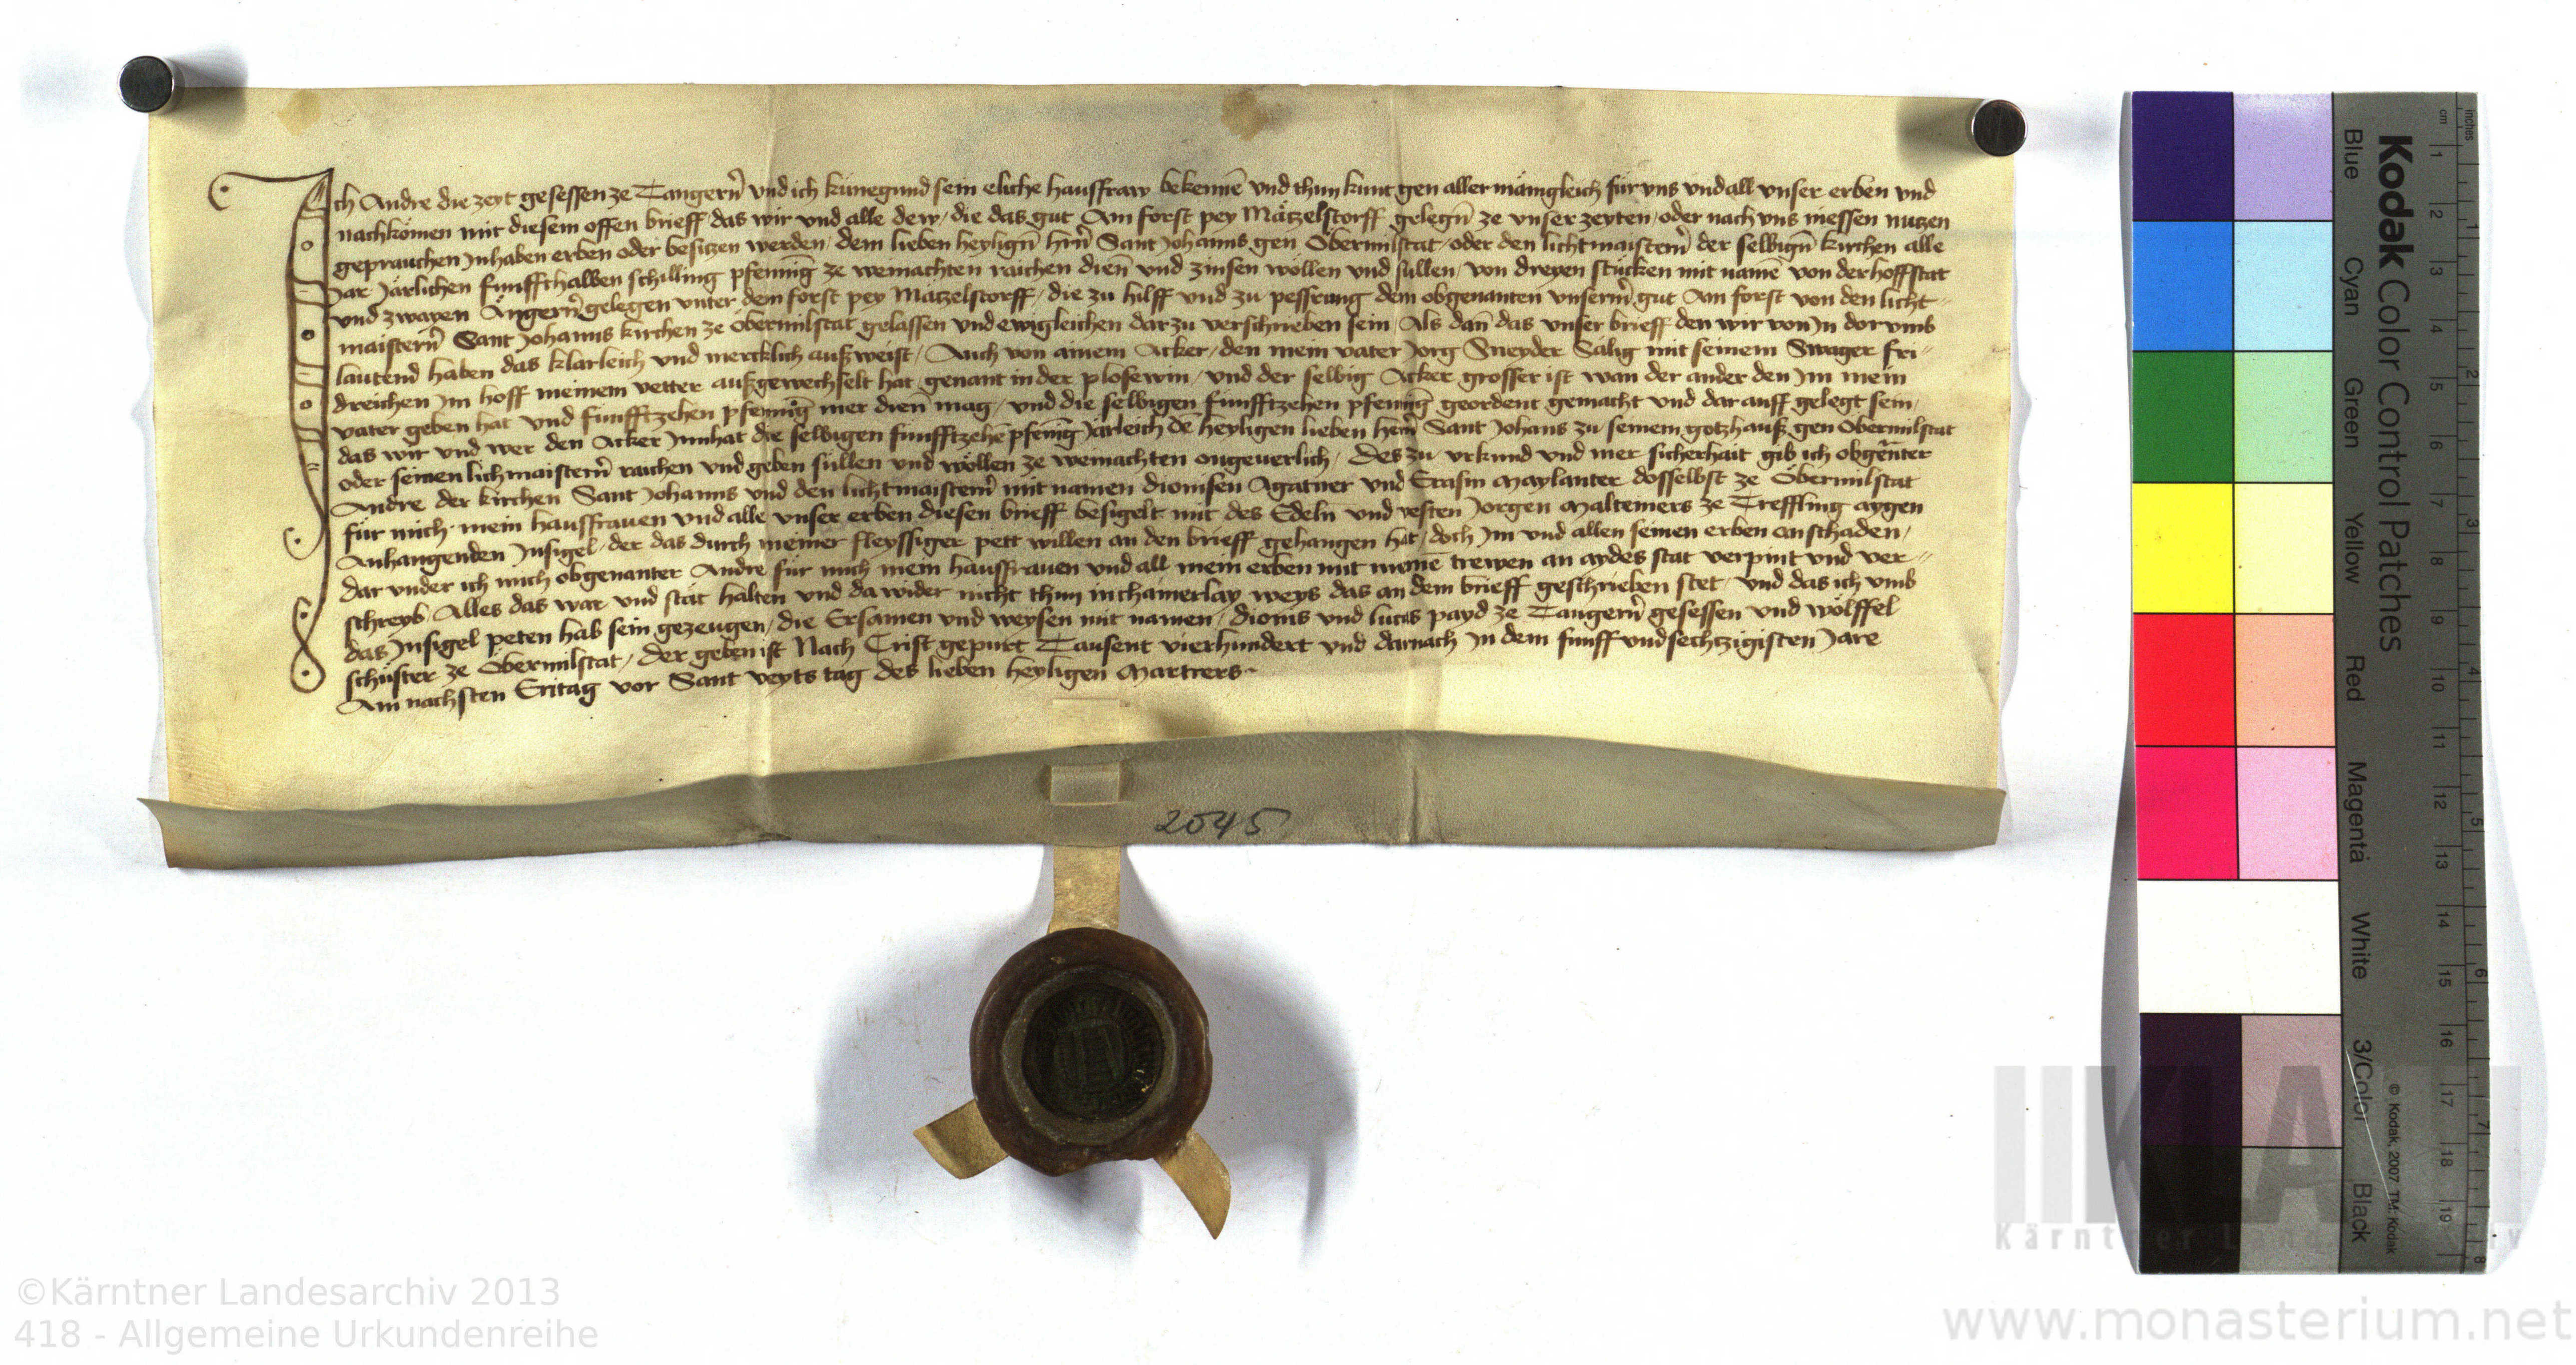 Ich Andre die zeyt gesessen ze Tangern̄ vnd ich künegund sein eliche hausfraw bekennē vnd thun kunt gen aller mänigleich für vns vnd all vnser erben vnd
nachkömen mit diesem offen brieff das wir vnd alle dew, die das gut Am forst pey Mätzelstorff gelegn̄ ze vnser zeyten, oder nach vns niessen nutzen
geprauchen Jnhaben erben oder besitzen werden, dem lieben heylign̄ hrn̄ Sant Johanns gen Obermilstat, oder den lichtmaistern̄ der selbign̄ kirchen alle
Jar Järlichen fünffthalben schilling pfenniḡ ze weinachten raichen dien̄ vnd zinsen wöllen vnd süllen, von dreyen stücken mit namē von der hoffstat
vnd zwayen Ängern̄ gelegen vnter dem forst pey Mätzelstorff, die zu hilff vnd zu pessrung dem obgenanten vnserm̄ gut Am forst von den licht=
maistern̄ Sant Johanns kirchen ze Obermilstat gelassen vnd ewigleichen darzu verschrieben sein, Als dan̄ das vnser brieff den wir von Jn dorvmb
lautend haben das klarleich vnd mercklich außweist, Auch von ainem Acker, den mein vater Jorg Sneyder Sälig mit seinem Swager fri=
dreichen Jm hoff meinem vetter außgewechselt hat genant in der plosewin, vnd der selbig Acker grosser ist wan der ander den Jm mein
vater geben hat vnd funfftzehen pfenniḡ mer dien̄ mag, vnd die selbigen fünfftzehen pfenniḡ geordent gemacht vnd dar auff gelegt sein,
das wir vnd wer den Acker Jnnhat die selbigen funfftzehē pfenniḡ Järleich dē heyligen lieben hern̄ Sant Johans zu seinem gotzhauß gen Obermilstat
oder seinen lichmaistern̄ raichen vnd geben süllen vnd wöllen ze weinachten ongeuerlich, Des zu vrkund vnd mer sicherhait gib ich obgen̄anter
Andre der kirchen Sant Johanns vnd den lichtmaistern̄ mit namen dionisen Agatner vnd Erasm Maylanter dosselbst ze Obermilstat
für mich mein hausfrauen vnd alle vnser erben diesen brieff besigelt mit des Edeln vnd vesten Jorgen Malteiners ze Treffling aygen
Anhangenden Jnsigel, der das durch meiner fleyssiger pett willen an den brieff gehangen hat, doch Jm vnd allen seinen erben an schaden,
dar vnder ich mich obgenanter Andre für mich mein hausfrauen vnd all mein erben mit meinē trewen an aydes stat verpint vnd ver=
schreyb, Alles das war vnd stät halten vnd da wider nicht thun inchainerlay weys das an dem brieff geschrieben stet, vnd das ich vmb
das Jnsigel peten hab sein gezeugen, die Ersamen vnd weysen mit namen, dionis vnd lucas payd ze Tangern̄ gesessen vnd wölffel
schüster ze Obermilstat, Der geben ist Nach Crist gepurt Tausent vierhundert vnd darnach Jn dem fünff vnd sechtzigisten Jare
Am nachsten Eritag vor Sant veyts tag des lieben heyligen Martrers
2045
Kodak Color Control Patches
© Kodak, 2007 TM: Kodak
Blue Cyan Green Yellow Red Magenta White 3/Color Black
cm 1 2 3 4 5 6 7 8 9 10 11 12 13 14 15 16 17 18 19
inches 1 2 3 4 5 6 7 8
©Kärntner Landesarchiv 2013
418 - Allgemeine Urkundenreihe
www.monasterium.net